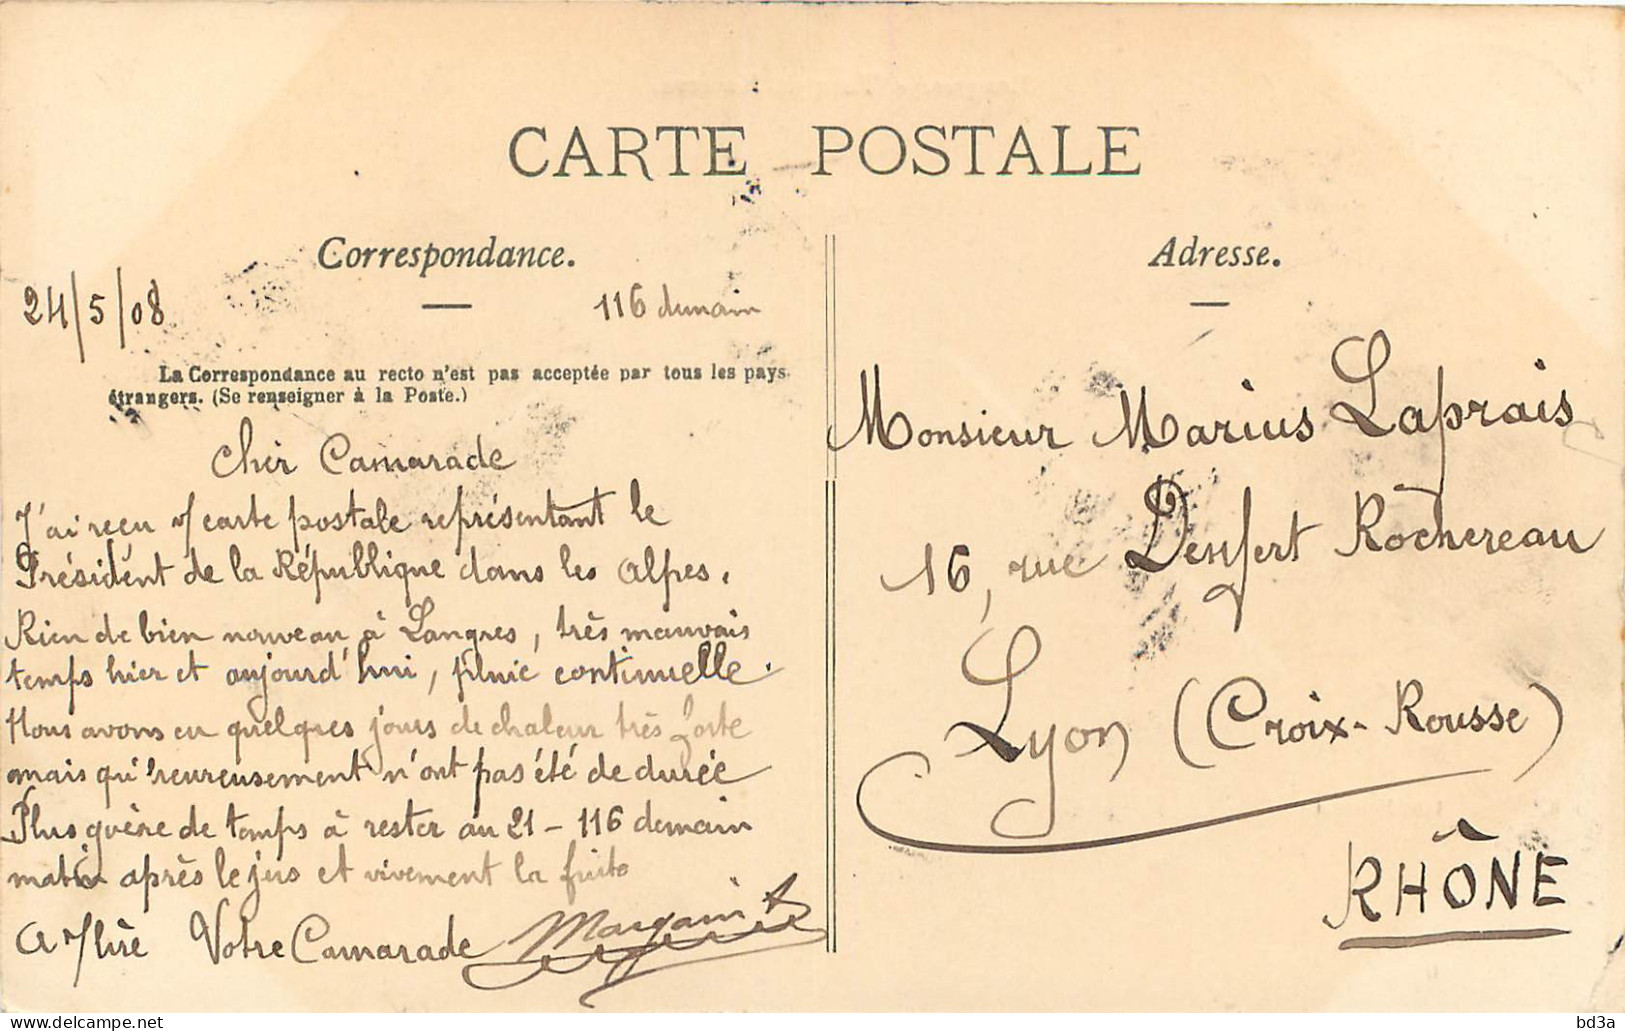 CARTE POSTALE
Correspondance.
24/5/08
116 demain
La Correspondance au recto n'est pas acceptée par tous les pays
étrangers. (Se renseigner à la Poste.)
Cher Camarade
J'ai reçu v/ carte postale représentant le
Président de la République dans les Alpes.
Rien de bien nouveau à Langres, très mauvais
temps hier et aujourd'hui, pluie continuelle.
Nous avons eu quelques jours de chaleur très forte
mais qu'heureusement n'ont pas été de durée
Plus guère de temps à rester au 21 - 116 demain
matin après le jus et vivement la fuite
A v/ lire Votre Camarade
Adresse.
Monsieur Marius Laprais
16, rue Denfert Rochereau
Lyon (Croix-Rousse)
RHÔNE
bd3a